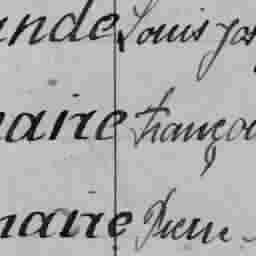 ande Louis Jos
naire Françoi
naire Pierre